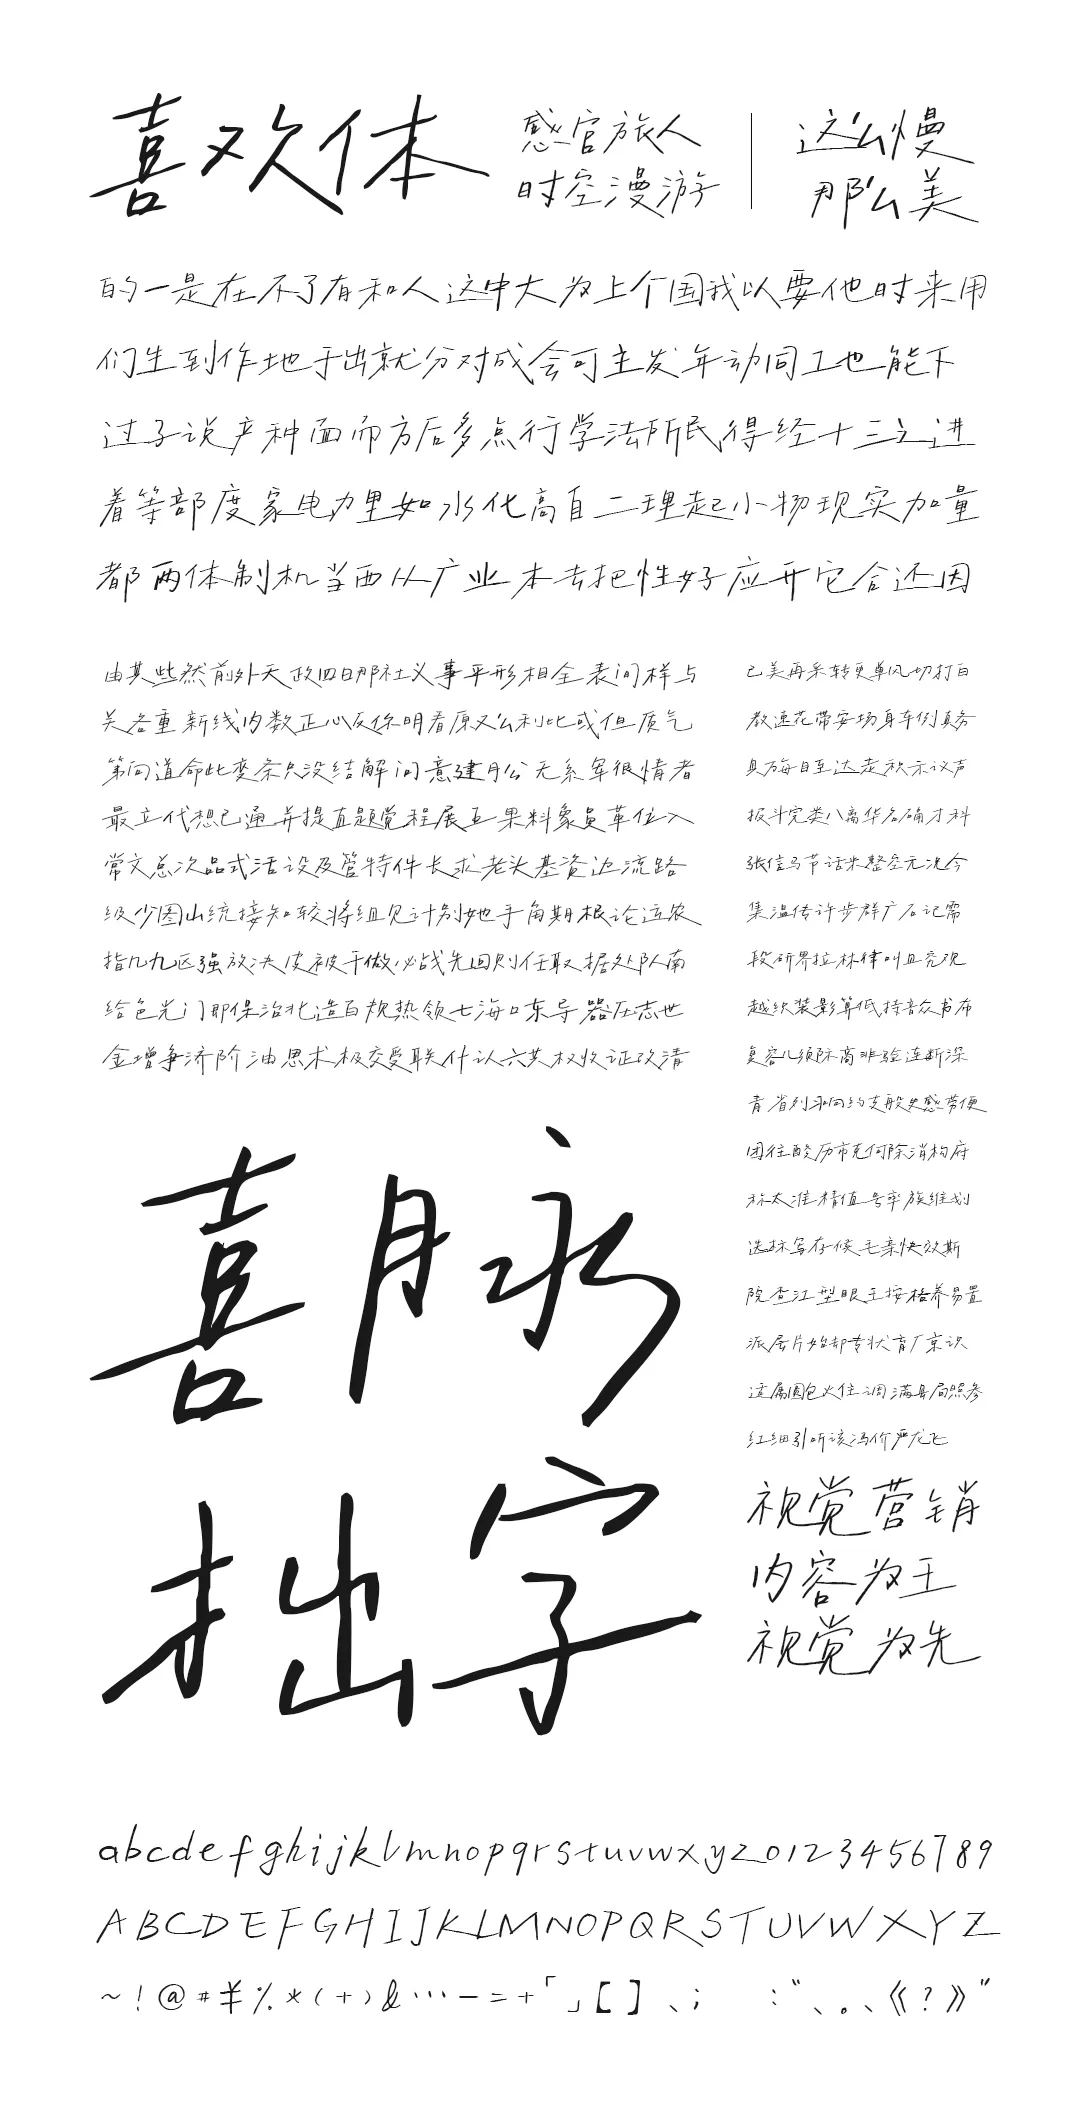 喜欢体
感官旅人
时空漫游
这么慢
那么美
的一是在不了有和人这中大为上个国我以要他时来用
们生到作地于出就分对成会可主发年动同工也能下
过子说产种面而方后多点行学法所民得经十三之进
着等部度家电力里如水化高自二理起小物现实加量
都两体制机当西从广业本去把性好应开它合还因
由其些然前外天政四日那社义事平形相全表间样与
关各重新线内数正心反你明看原又么利比或但质气
第向道命此变条只没结解问意建月公无系军很情者
最立代想已通并提直题党程展五果料象员革位入
常文总次品式活设及管特件长求老头基资边流路
级少图山统接知较将组见计别她手角期根论运农
指几九区强放决皮被干做必战先回则任取据处队南
给色光门即保治北造百规热领七海口东导器压志世
金增争济阶油思术极交受联什认六共权收证改清
己美再采转更单风切打白
教速花带安场身车例真务
具万每目至达走积示议声
报斗完类八离华名确才科
张信马节话米整空元况今
集温传许步群广石记需
段研界拉林律叫且究观
越织装影算低持音众书布
复容儿须际商非验连断深
青省列响约支般史感劳便
团往酸历市克何除消构府
称太准精值号率族维划
选标写存候毛亲快效斯
院查江型眼王按格养易置
派层片始却专状育厂京识
适属圆包火住调满县局照参
红细引听该冯价严龙飞
喜月永
拙字
视觉营销
内容为王
视觉为先
abcdefghijklmnopqrstuvwxyz0123456789
ABCDEFGHIJKLMNOPQRSTUVWXYZ
~!@#¥%*(+)&…—=+「」【】、; :“、。、《?》”